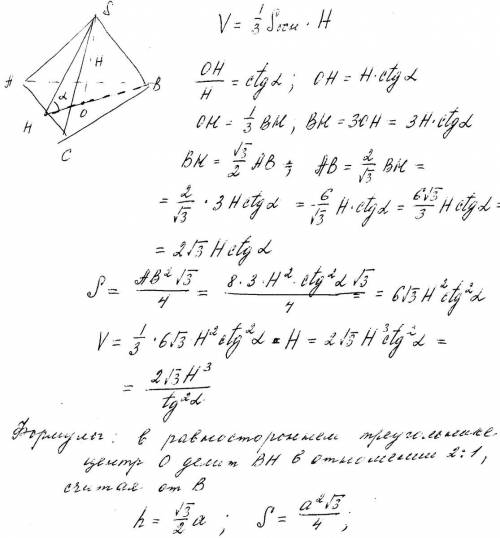 S
H
A
B
α
H
O
C
V = 1/3 Sосн · H
OH/H = ctgα ; OH = H·ctgα
OH = 1/3 BH ; BH = 3OH = 3H·ctgα
BH = √3/2 AB ; AB = 2/√3 BH =
= 2/√3 · 3Hctgα = 6/√3 H·ctgα = 6√3/3 Hctgα =
= 2√3 Hctgα
S = AB²√3/4 = 8·3·H²·ctg²α √3/4 = = 6√3 H²ctg²α
V = 1/3 · 6√3 H²ctg²α · H = 2√3 H³ctg²α =
= 2√3 H³/tg²α
Формулы: в равностороннем треугольнике
центр О делит ВН в отношении 2:1,
считая от В
h = √3/2 a ; S = a²√3/4 ;